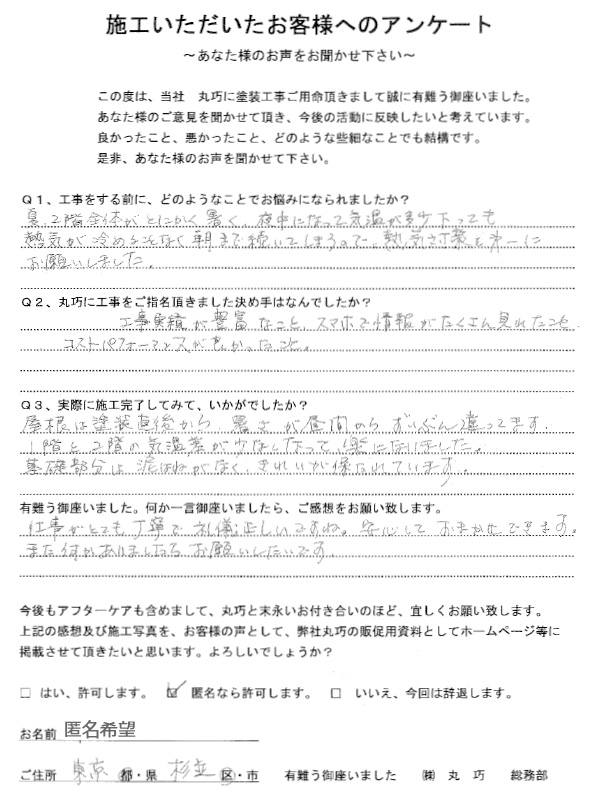 施工いただいたお客様へのアンケート
～あなた様のお声をお聞かせ下さい～
この度は、当社　丸巧に塗装工事ご用命頂きまして誠に有難う御座いました。
あなた様のご意見を聞かせて頂き、今後の活動に反映したいと考えています。
良かったこと、悪かったこと、どのような些細なことでも結構です。
是非、あなた様のお声を聞かせて下さい。
Q1、工事をする前に、どのようなことでお悩みになられましたか？
夏、2階全体がとにかく暑く、夜中になって気温が多少下っても
熱気が冷めることなく朝まで続いてしまうので、熱気対策を第一に
お願いしました。
Q2、丸巧に工事をご指名頂きました決め手はなんでしたか？
工事実績が豊富なこと、スマホで情報がたくさん見れたこと
コストパフォーマンスが良かったこと。
Q3、実際に施工完了してみて、いかがでしたか？
屋根は塗装直後から、暑さが昼間からずいぶん違ってます。
1階と2階の気温差が少なくなって、楽になりました。
基礎部分は泥はねがなく、きれいが保たれています。
有難う御座いました。何か一言御座いましたら、ご感想をお願い致します。
仕事がとても丁寧で礼儀正しいですね。安心しておまかせできます。
また何かありましたらお願いしたいです
今後もアフターケアも含めまして、丸巧と末永いお付き合いのほど、宜しくお願い致します。
上記の感想及び施工写真を、お客様の声として、弊社丸巧の販促用資料としてホームページ等に
掲載させて頂きたいと思います。よろしいでしょうか？
□ はい、許可します。 ☑ 匿名なら許可します。 □ いいえ、今回は辞退します。
お名前 匿名希望
ご住所 東京 都・県 杉並 区・市 有難う御座いました ㈱ 丸 巧 総務部